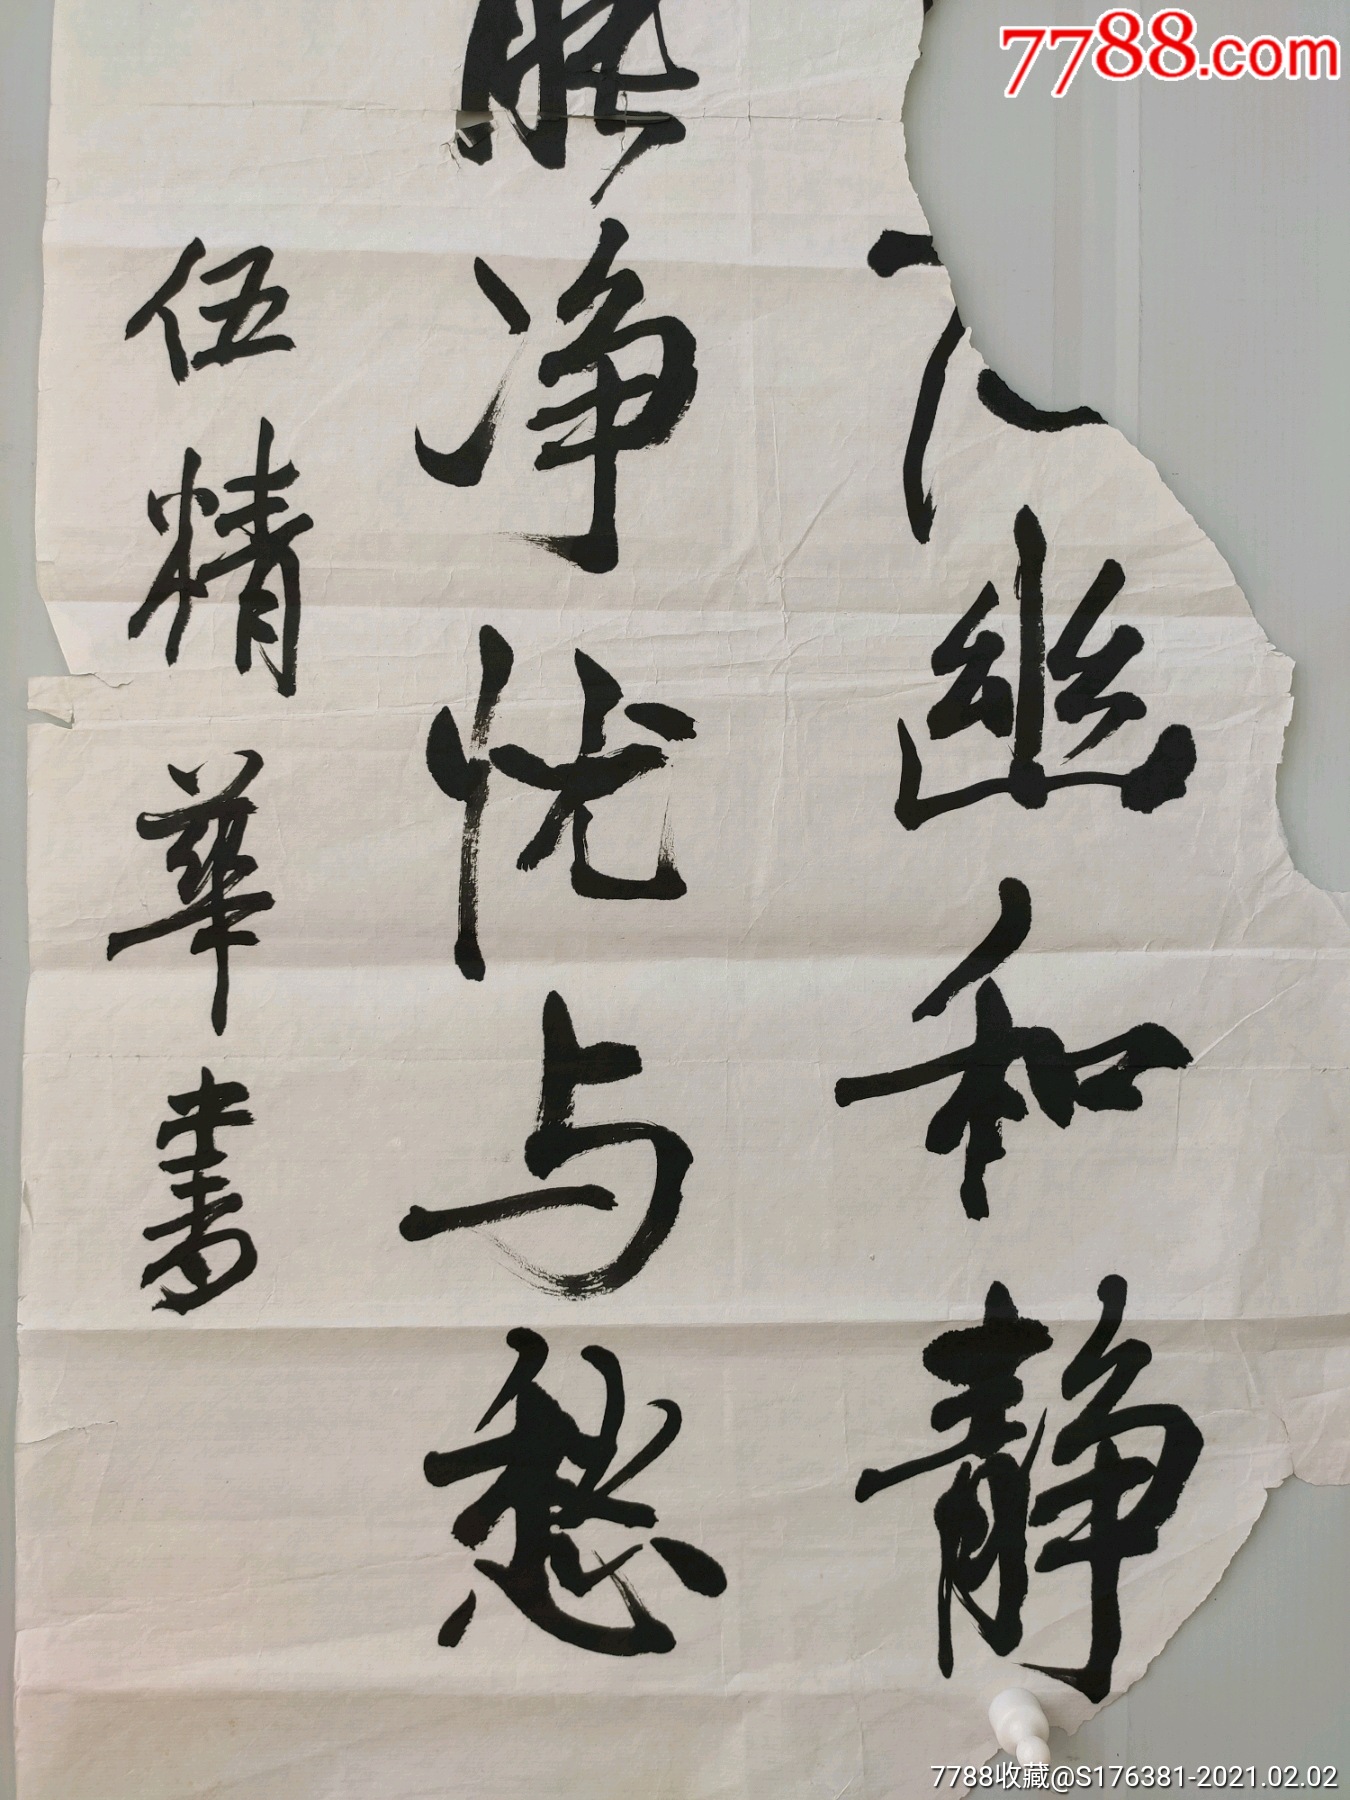 7788.com
幽和静
净忧与愁
伍精华书
7788收藏@S176381-2021.02.02